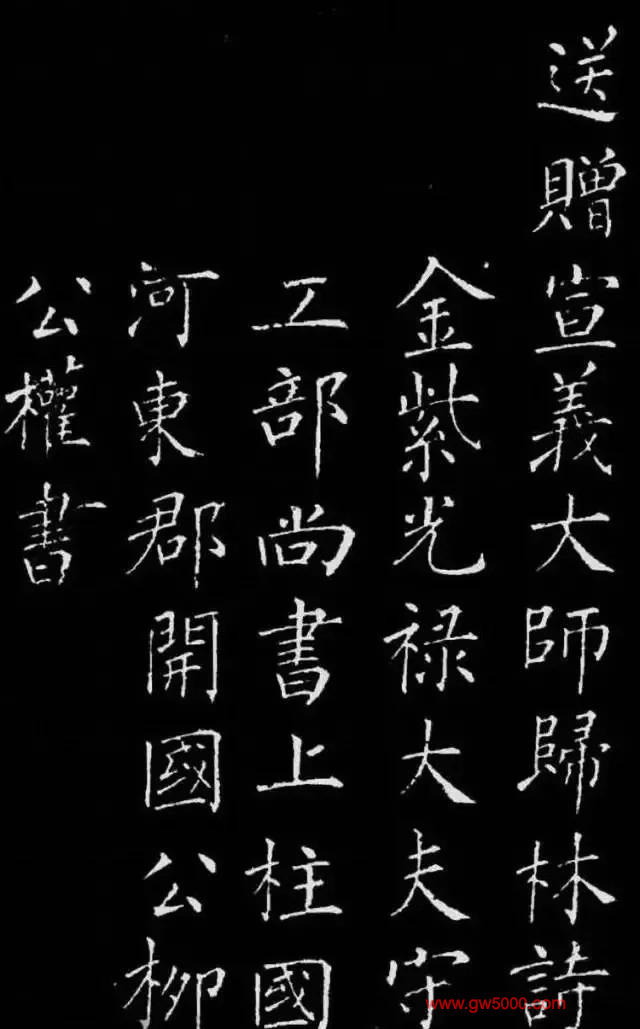 送贈宣義大師歸林詩
金紫光禄大夫守
工部尚書上柱國
河東郡開國公柳
公權書
www.gw5000.com